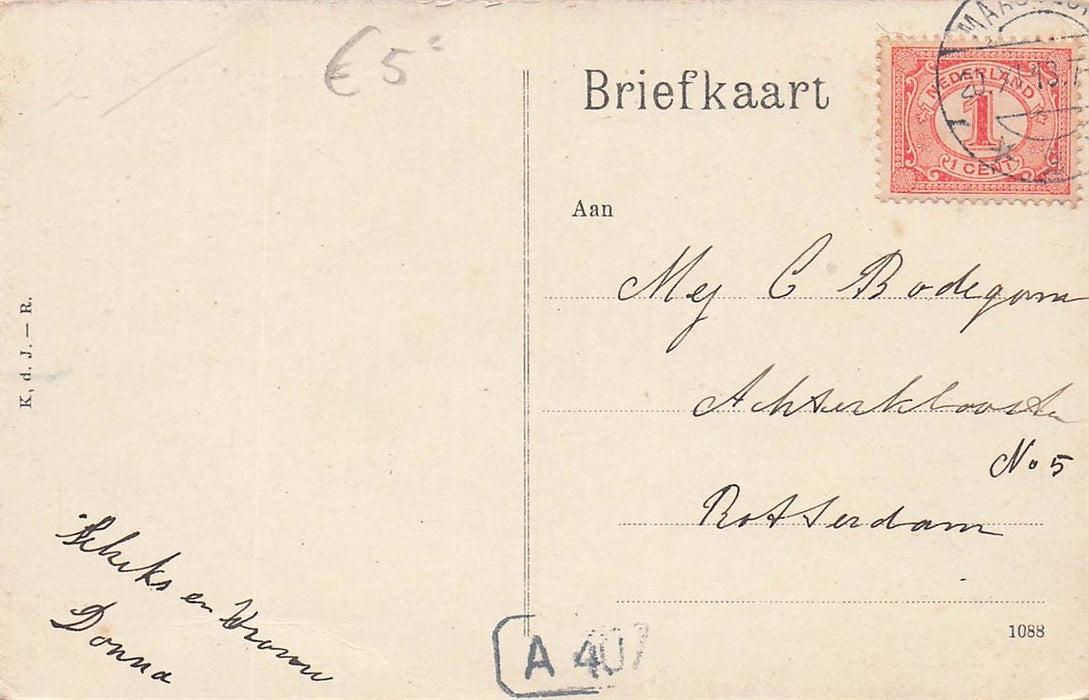 € 5
Briefkaart
NEDERLAND
1
1 CENT
Aan
Mej C Bodegom
Achterklooster
No 5
Rotterdam
K. d. J. — R.
en
Donna
A 407
1088